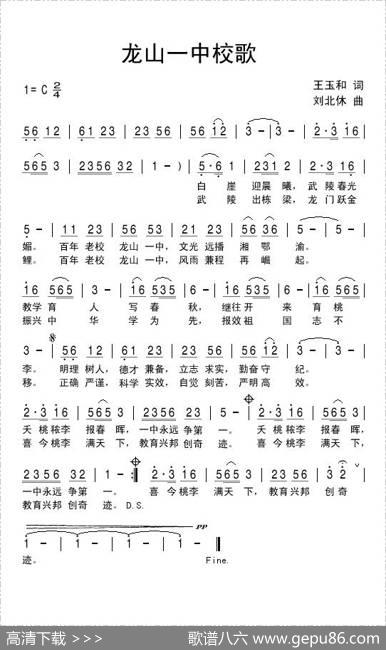 龙山一中校歌
1= C 2/4
王玉和 词
刘北休 曲
56 12 | 61 23 | 23 56 | 56 12 | 3 - | 3 - | 2·3 16 |
5653 | 2356 32 | 1 - ) | 5·6 1 | 231 2 | 2·3 16 |
白 崖 迎晨 曦，武 陵 春光
武 陵 出栋 梁，龙 门 跃金
5 - | 11 23 | 56 53 | 21 23 | 56 36 | 5 - |
媚。 百年 老校 龙山 一中，文光 远播 湘 鄂 渝。
鲤。 百年 老校 龙山 一中，风雨 兼程 再 崛 起。
教学 育 人 写 春 秋，继往 开 来 育 桃
振兴 中 华 学 为 先，报效 祖 国 志 不
李。 明理 树人，德才 兼备，立志 求实，勤奋 守 纪。
移。 正确 严谨，科学 实效，自觉 刻苦，严明 高 效。
夭 桃 秾李 报春 晖，一中永远 争第 一。 夭 桃 秾李 报春 晖，
喜 今 桃李 满天 下，教育兴邦 创奇 迹。 喜 今 桃李 满天 下，
2356 32 | 1 - :|
一中永远 争第 一。 喜 今 桃李 满天 下，教育兴邦 创 奇
教育兴邦 创奇 迹。D.S.
pp
1 - | 1 - | 1 - | 1 - ‖
迹。 Fine.
高清下载 >>> 歌谱八六 www.gepu86.com